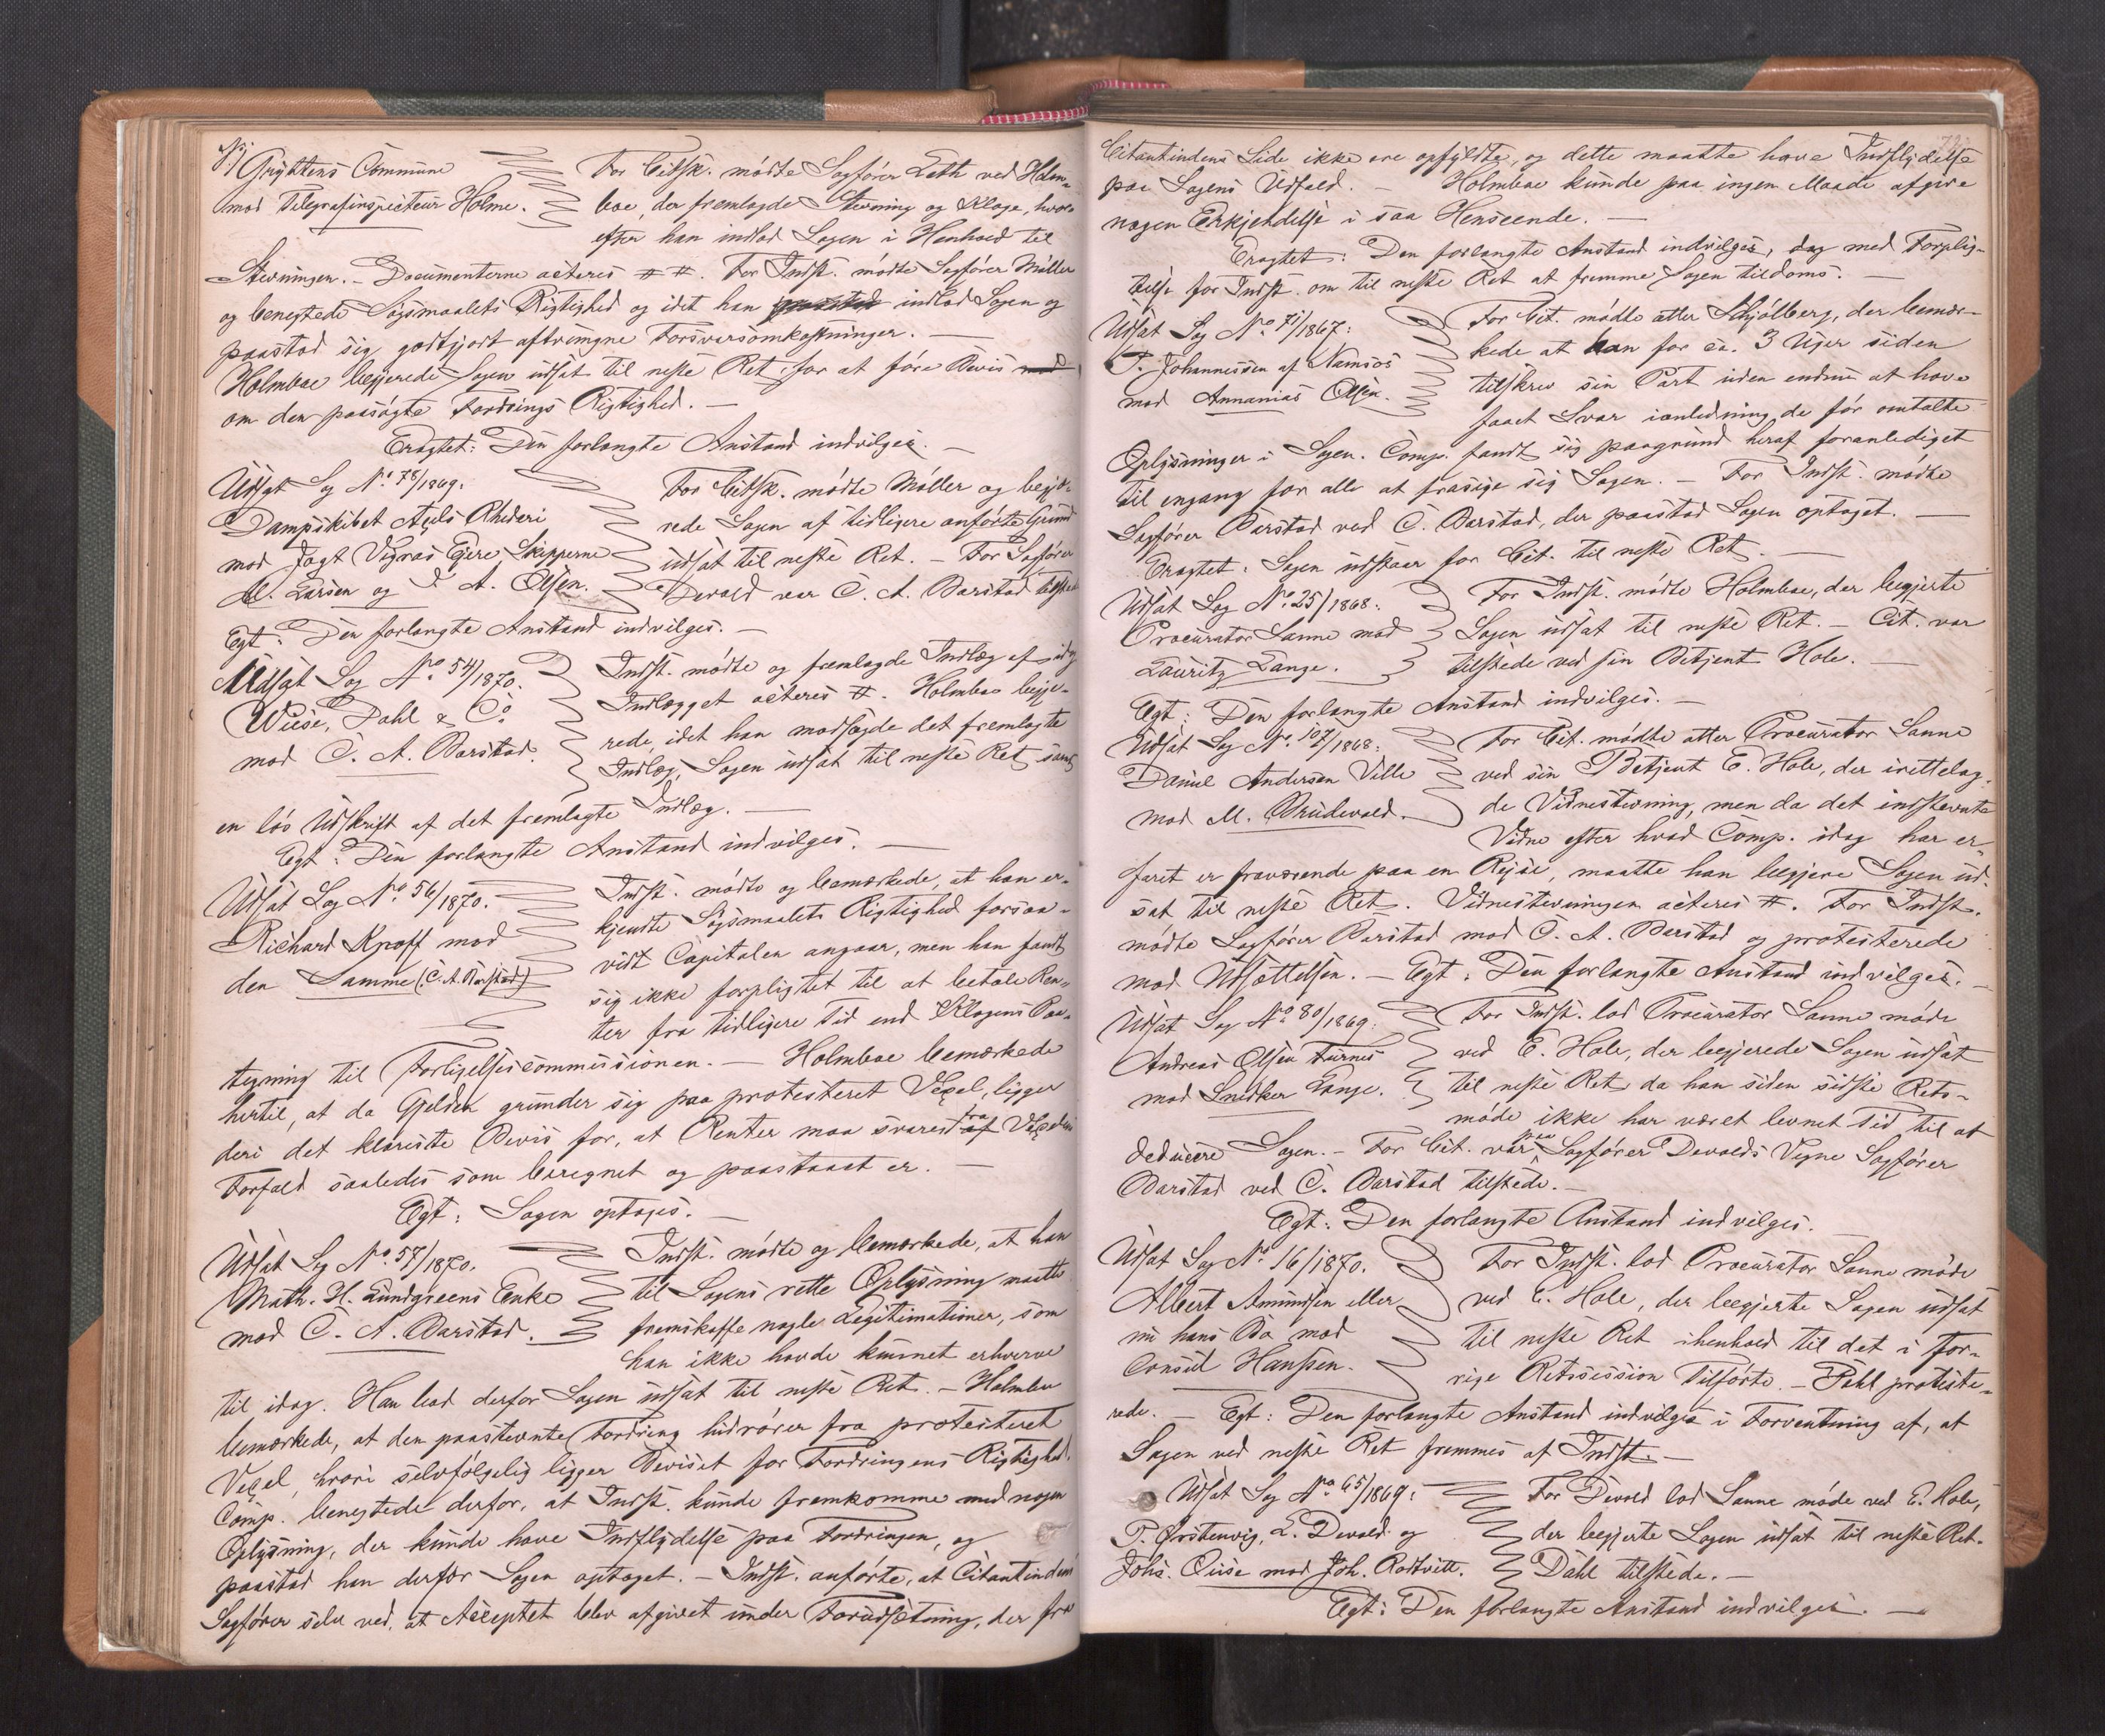 Gryttens Commune
mod Telegrafinspecteur Holme.
For Citsk. mødte Sagfører Leth ved Holm-
boe, der fremlagde Stevning og Klage, hvor-
efter han indlod Sagen i Henhold til
Stevningen. – Documenterne acteres # #. For Indst. mødte Sagfører Møller
og benegtede Søgsmaalets Rigtighed og idet han indlod Sagen og
paastod sig godtgjort aftvungne Forsvarsomkostninger. –
Holmboe begjerede Sagen udsat til neste Ret for at føre Bevis
om den paasøgte Fordrings Rigtighed. –
Eragtet: Den forlangte Anstand indvilges. –
Udsat Sag No. 78/1869.
Dampskibet Ægils Rhederi
mod Jagt Vigras Ejere Skipperne
M. Larsen og I. A. Olsen.
For Citsk. mødte Møller og begje-
rede Sagen af tidligere anførte Grund
udsat til neste Ret. – For Sagfører
Devold var C. A. Barstad tilstede
Egt: Den forlangte Anstand indvilges. –
Udsat Sag No. 54/1870.
Wiese, Dahl & Co.
mod C. A. Barstad.
Indst. mødte og fremlagde Indlæg af idag
Indlægget acteres #. Holmboe begje-
rede, idet han modsagde det fremlagte
Indlæg, Sagen udsat til neste Ret samt
en løs Udskrift af det fremlagte Indlæg. –
Egt: Den forlangte Anstand indvilges. –
Udsat Sag No. 56/1870.
Richard Knoff mod
den Samme (C. A. Barstad)
Indst. mødte og bemærkede, at han er-
kjendte Søgsmaalets Rigtighed forsaa-
vidt Capitalen angaar, men han fandt
sig ikke forpligtet til at betale Ren-
ter fra tidligere Tid end Klagens Paa-
tegning til Forligelsescommissionen. – Holmboe bemærkede
hertil, at da Gjelden grunder sig paa protesteret Vexel, ligger
deri det klareste Bevis for, at Renter maa svares fra Vexelens
Forfald saaledes som beregnet og paastaaet er. –
Egt: Sagen optages. –
Udsat Sag No. 57/1870.
Math. H. Lundgreens Enke
mod C. A. Barstad.
Indst. mødte og bemærkede, at han
til Sagens rette Oplysning maatte
fremskaffe nogle Legitimationer, som
han ikke havde kunnet erhverve
til idag. Han bad derfor Sagen udsat til neste Ret. – Holmboe
bemærkede, at den paastevnte Fordring hidrører fra protesteret
Vexel, hvori selvfølgelig ligger Beviset for Fordringens Rigtighed.
Comp. benegtede derfor, at Indst. kunde fremkomme med nogen
Oplysning, der kunde have Indflydelse paa Fordringen, og
paastod han derfor Sagen optaget. – Indst. anførte, at Citantindens
Sagfører selv ved, at Acceptet blev afgivet under Forudsetning, der fra
Citantindens Side ikke ere opfyldte, og dette maatte have Indflydelse
paa Sagens Udfald. – Holmboe kunde paa ingen Maade afgive
nogen Erkjendelse i saa Henseende. –
Eragtet: Den forlangte Anstand indvilges, dog med Forplig-
telse for Indst. om til neste Ret at fremme Sagen tildoms. –
Udsat Sag No. 71/1867:
T. Johannessen af Namsos
mod Annanias Olsen.
For Cit. mødte atter Skjølberg, der bemær-
kede at han for ca. 3 Uger siden
tilskrev sin Part uden endnu at have
faaet Svar ianledning de før omtalte
Oplysninger i Sagen. Comp. fandt sig paagrund heraf foranlediget
til engang for alle at frasige sig Sagen. – For Indst. mødte
Sagfører Barstad ved C. Barstad, der paastod Sagen optaget. –
Eragtet: Sagen udstaar for Cit. til neste Ret. –
Udsat Sag No. 25/1868:
Procurator Sanne mod
Lauritz Lange.
For Indst. mødte Holmboe, der begjerte
Sagen udsat til neste Ret. – Cit. var
tilstede ved sin Betjent Hole. –
Egt: Den forlangte Anstand indvilges. –
Udsat Sag No. 107/1868:
Daniel Andersen Ville
mod M. Brudevold.
For Cit. mødte atter Procurator Sanne
ved sin Betjent E. Hole, der irettelag-
de Vidnestevning, men da det indstevnte
Vidne efter hvad Comp. idag har er-
faret er fraværende paa en Rejse, maatte han begjere Sagen ud-
sat til neste Ret. Vidnestevningen acteres #. For Indst.
mødte Sagfører Barstad med C. A. Barstad og protesterede
mod Udsættelsen. – Egt: Den forlangte Anstand indvilges. –
Udsat Sag No. 80/1869.
Andreas Olsen Furnes
mod Snedker Lange.
For Indst. lod Procurator Sanne møde
ved E. Hole, der begjerede Sagen udsat
til neste Ret da han siden sidste Rets-
møde ikke har været levnet Tid til at
deducere Sagen. – For Cit. var paa Sagfører Devolds Vegne Sagfører
Barstad ved C. Barstad tilstede. –
Egt: Den forlangte Anstand indvilges. –
Udsat Sag No. 16/1870.
Albert Amundsen eller
nu hans Bo mod
Consul Hanssen.
For Indst. lod Procurator Sanne møde
ved E. Hole, der begjerte Sagen udsat
til neste Ret ihenhold til det i for-
rige Retssession Tilførte. – Dahl proteste-
rede. – Egt: Den forlangte Anstand indvilges i Forventning af, at
Sagen ved neste Ret fremmes af Indst. –
Udsat Sag No. 65/1869:
P. Ørstenvig, L. Devold og
Johs. Quise mod Joh. Rødtvitt.
For Devold lod Sanne møde ved E. Hole,
der begjerte Sagen udsat til neste Ret.
Dahl tilstede. –
Egt: Den forlangte Anstand indvilges. –